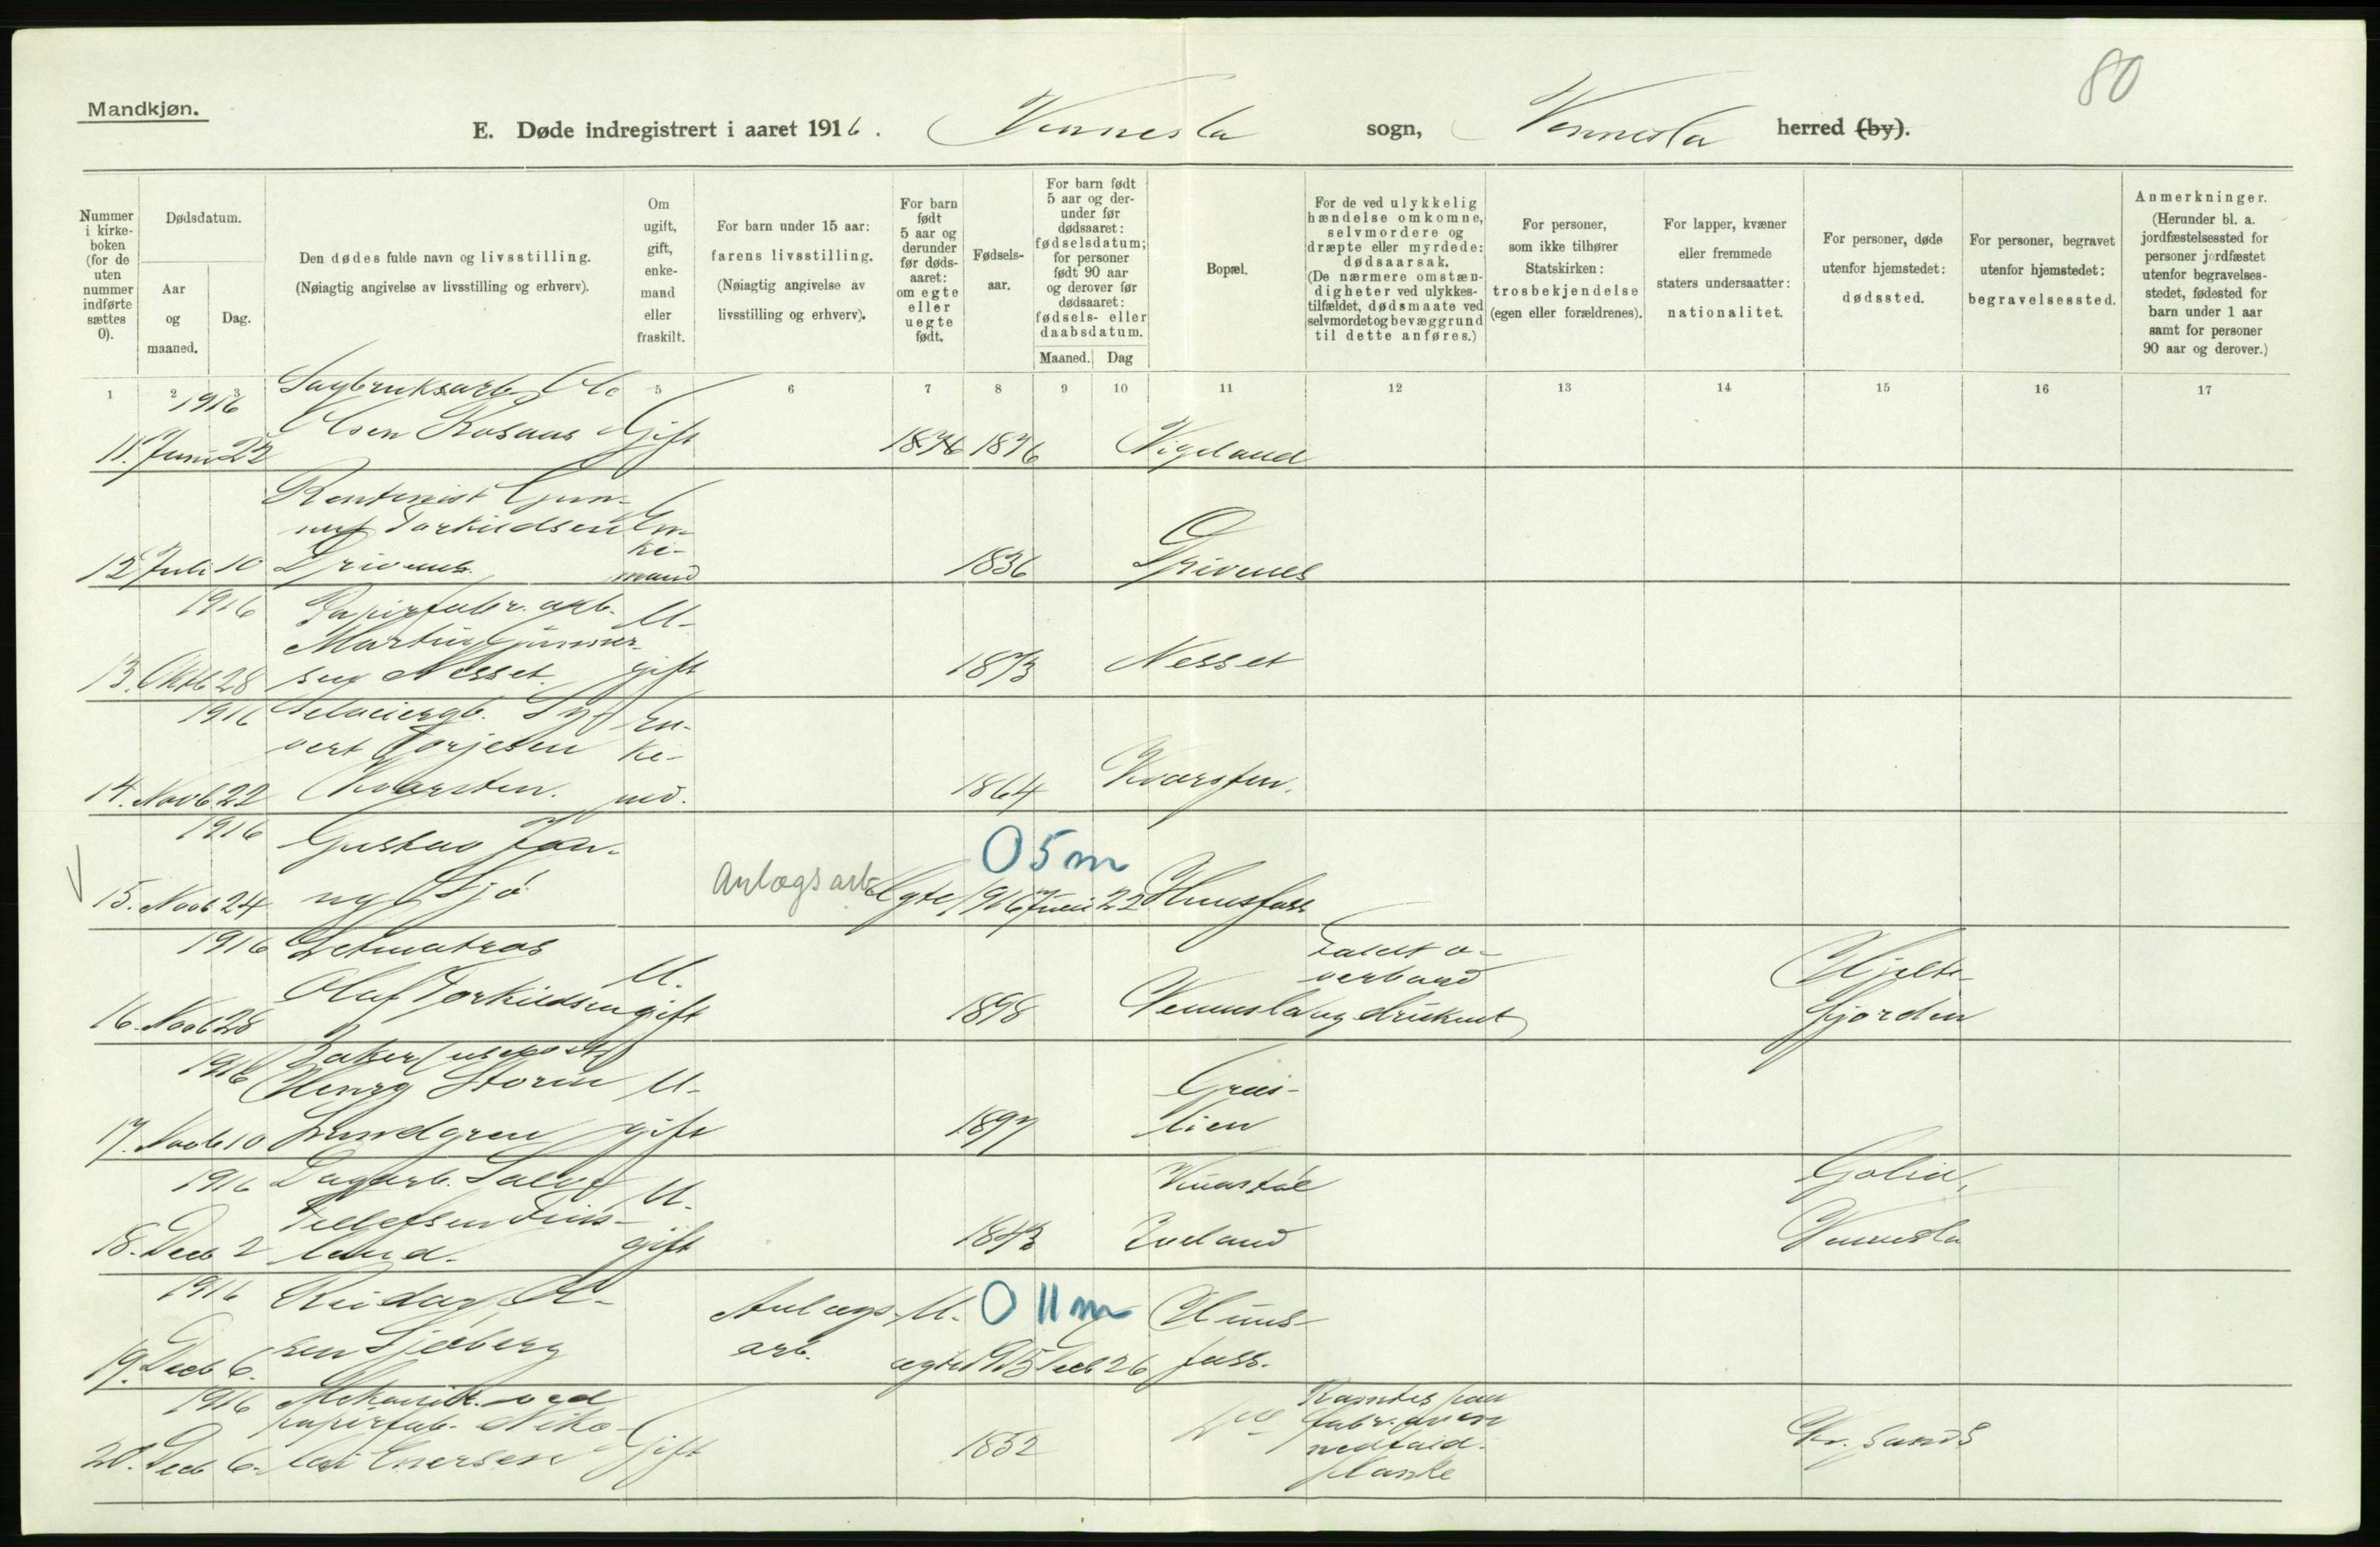 80
Mandkjøn.
E. Døde indregistrert i aaret 1916. Vennesla sogn, Vennesla herred (by).
Nummer i kirke-boken (for de uten nummer indførte sættes 0).
Dødsdatum.
Aar og maaned.
Dag.
Den dødes fulde navn og livsstilling.
(Nøiagtig angivelse av livsstilling og erhverv).
Om ugift, gift, enke-mand eller fraskilt.
For barn under 15 aar: farens livsstilling. (Nøiagtig angivelse av livsstilling og erhverv).
For barn født 5 aar og derunder før døds-aaret: om egte eller uegte født.
Fødsels-aar.
For barn født 5 aar og der-under før dødsaaret: fødselsdatum; for personer født 90 aar og derover før dødsaaret: fødsels- eller daabsdatum.
Maaned. Dag
Bopæl.
For de ved ulykkelig hændelse omkomne, selvmordere og dræpte eller myrdede: dødsaarsak. (De nærmere omstæn-digheter ved ulykkes-tilfældet, dødsmaate ved selvmordet og bevæggrund til dette anføres.)
For personer, som ikke tilhører Statskirken: trosbekjendelse (egen eller forældrenes).
For lapper, kvæner eller fremmede staters undersaatter: nationalitet.
For personer, døde utenfor hjemstedet: dødssted.
For personer, begravet utenfor hjemstedet: begravelsessted.
Anmerkninger. (Herunder bl. a. jordfæstelsessted for personer jordfæstet utenfor begravelses-stedet, fødested for barn under 1 aar samt for personer 90 aar og derover.)
1 2 3 5 6 7 8 9 10 11 12 13 14 15 16 17
1916 Sagbruksarb. Ole
Olsen Gift
11. Juni 22 1876 1876 Vigeland
Rentenist Gun-
nuf Torkildsen En-
ke-
12 Juli 10 Drivenes mand 1836 Drivenes
1916 Papirfabr. arb. U-
Martin Gunnar-
13. Oktb 28 sen Nesset. gift 1873 Nesset
1916 Selveiergb. Sy- En-
vert Torjesen ke-
14. Novb 22 Kvarsten. md. 1864 Kvarsten.
1916 Gustav Hen- 0 5 m
15. Novb 24 ny Sjø Anlægsarb Egte 1916 Juni 22 Hunsfoss
1916 Letmatros Faldt o-
U. verbord Hjelte-
16. Novb 28 Olaf Torkildsen gift 1898 Vennesla og druknet fjorden
1916 Henry Storm U- Gras-
17. Novb 10 Lundgren gift 1897 lien
1916 Dagarb. Salve U. Golid,
Tellefsen Fins-
18. Decb 2 land. gift 1843 Iveland Vennesla
1916 Reidar Anlægs- U- 0 11 m Huns-
19. Decb 6. sen Sjøberg arb. egte 1915 Decb 26 foss.
1916 Mekaniker ved Ramtes paa
papirfab. Niko- fabr. av en
20. Decb 6. lai Enersen Gift 1852 nedfald. Kr. sands
planke